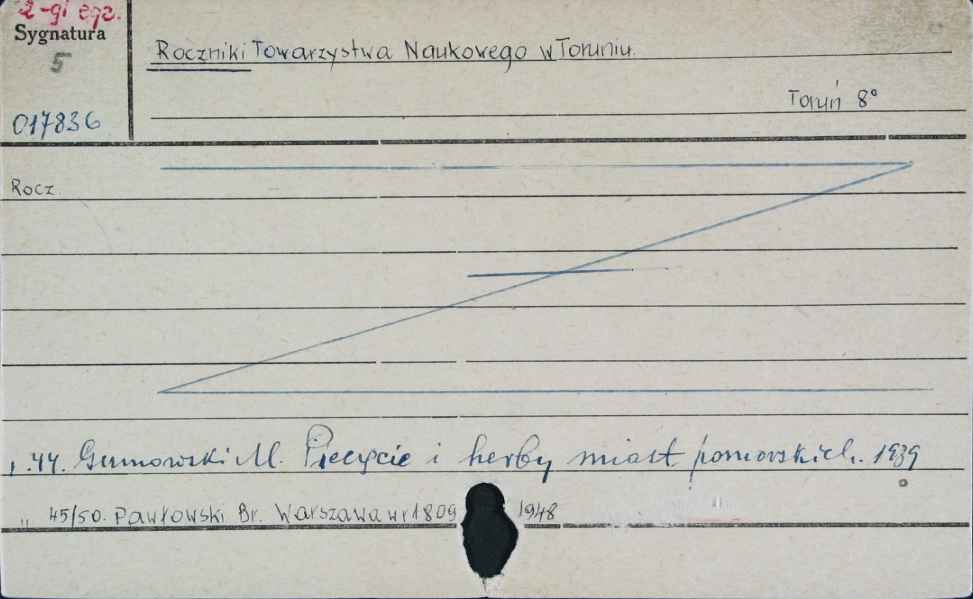 2-gi egz.
Sygnatura
5
017836
Roczniki Towarzystwa Naukowego w Toruniu.
Toruń 8°
Rocz.
„ 44. Gumowski M. Pieczęcie i herby miast pomorskich. 1939
„ 45/50. Pawłowski Br. Warszawa w r 1809 1948